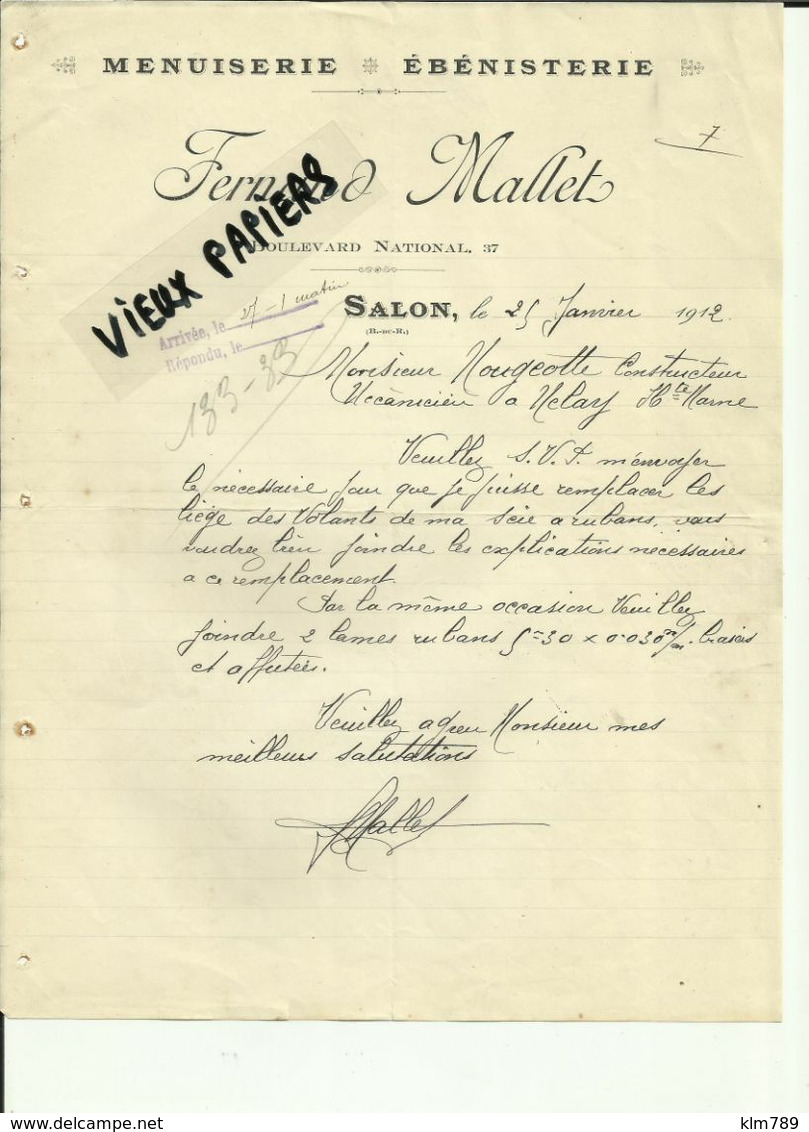 MENUISERIE ÉBÉNISTERIE
7
Fernand Mallet
VIEUX PAPIERS
BOULEVARD NATIONAL, 37
Arrivée, le 27-1 matin
Répondu, le
133-33
SALON, le 25 Janvier 1912
(B.-DU-R.)
Monsieur Mougeotte Constructeur
Mécanicien a Melay Hte Marne
Veuillez S.V.P. m'envoyer
le nécessaire pour que je puisse remplacer les
liège des Volants de ma scie a rubans, vous
voudrez bien joindre les explications nécessaires
a ce remplacement.
Par la même occasion Veuillez
joindre 2 lames rubans 5m30 x 0.030 m/m brasées
et affutées.
Veuillez agréer Monsieur mes
meilleurs salutations
FMallet
www.delcampe.net
klm789